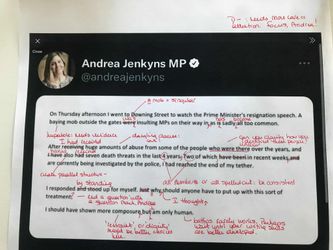 D- : Needs more care &
attention. Focus, Andrea!
Close
Andrea Jenkyns MP
@andreajenkyns
A mob = singular!
On Thursday afternoon I went to Downing Street to watch the Prime Minister's resignation speech. A
was
not
become
baying mob outside the gates were insulting MPs on their way in as is sadly all too common.
hyperbole: needs evidence
dangling clause:
Can you clarify how you
I had received
identified these people?
After receiving huge amounts of abuse from some of the people who were there over the years, and
I have also had seven death threats in the last 4 years. Two of which have been in recent weeks and
are currently being investigated by the police, I had reached the end of my tether.
create parallel structure -
all numbers or all spelled out: be consistent
by standing
I responded and stood up for myself. Just why should anyone have to put up with this sort of
treatment.
end a question with
a question mark, Andrea
I thought,
I should have shown more composure but am only human.
restraint or dignity
might be better choices
here
before
until your writing skills
are better developed.